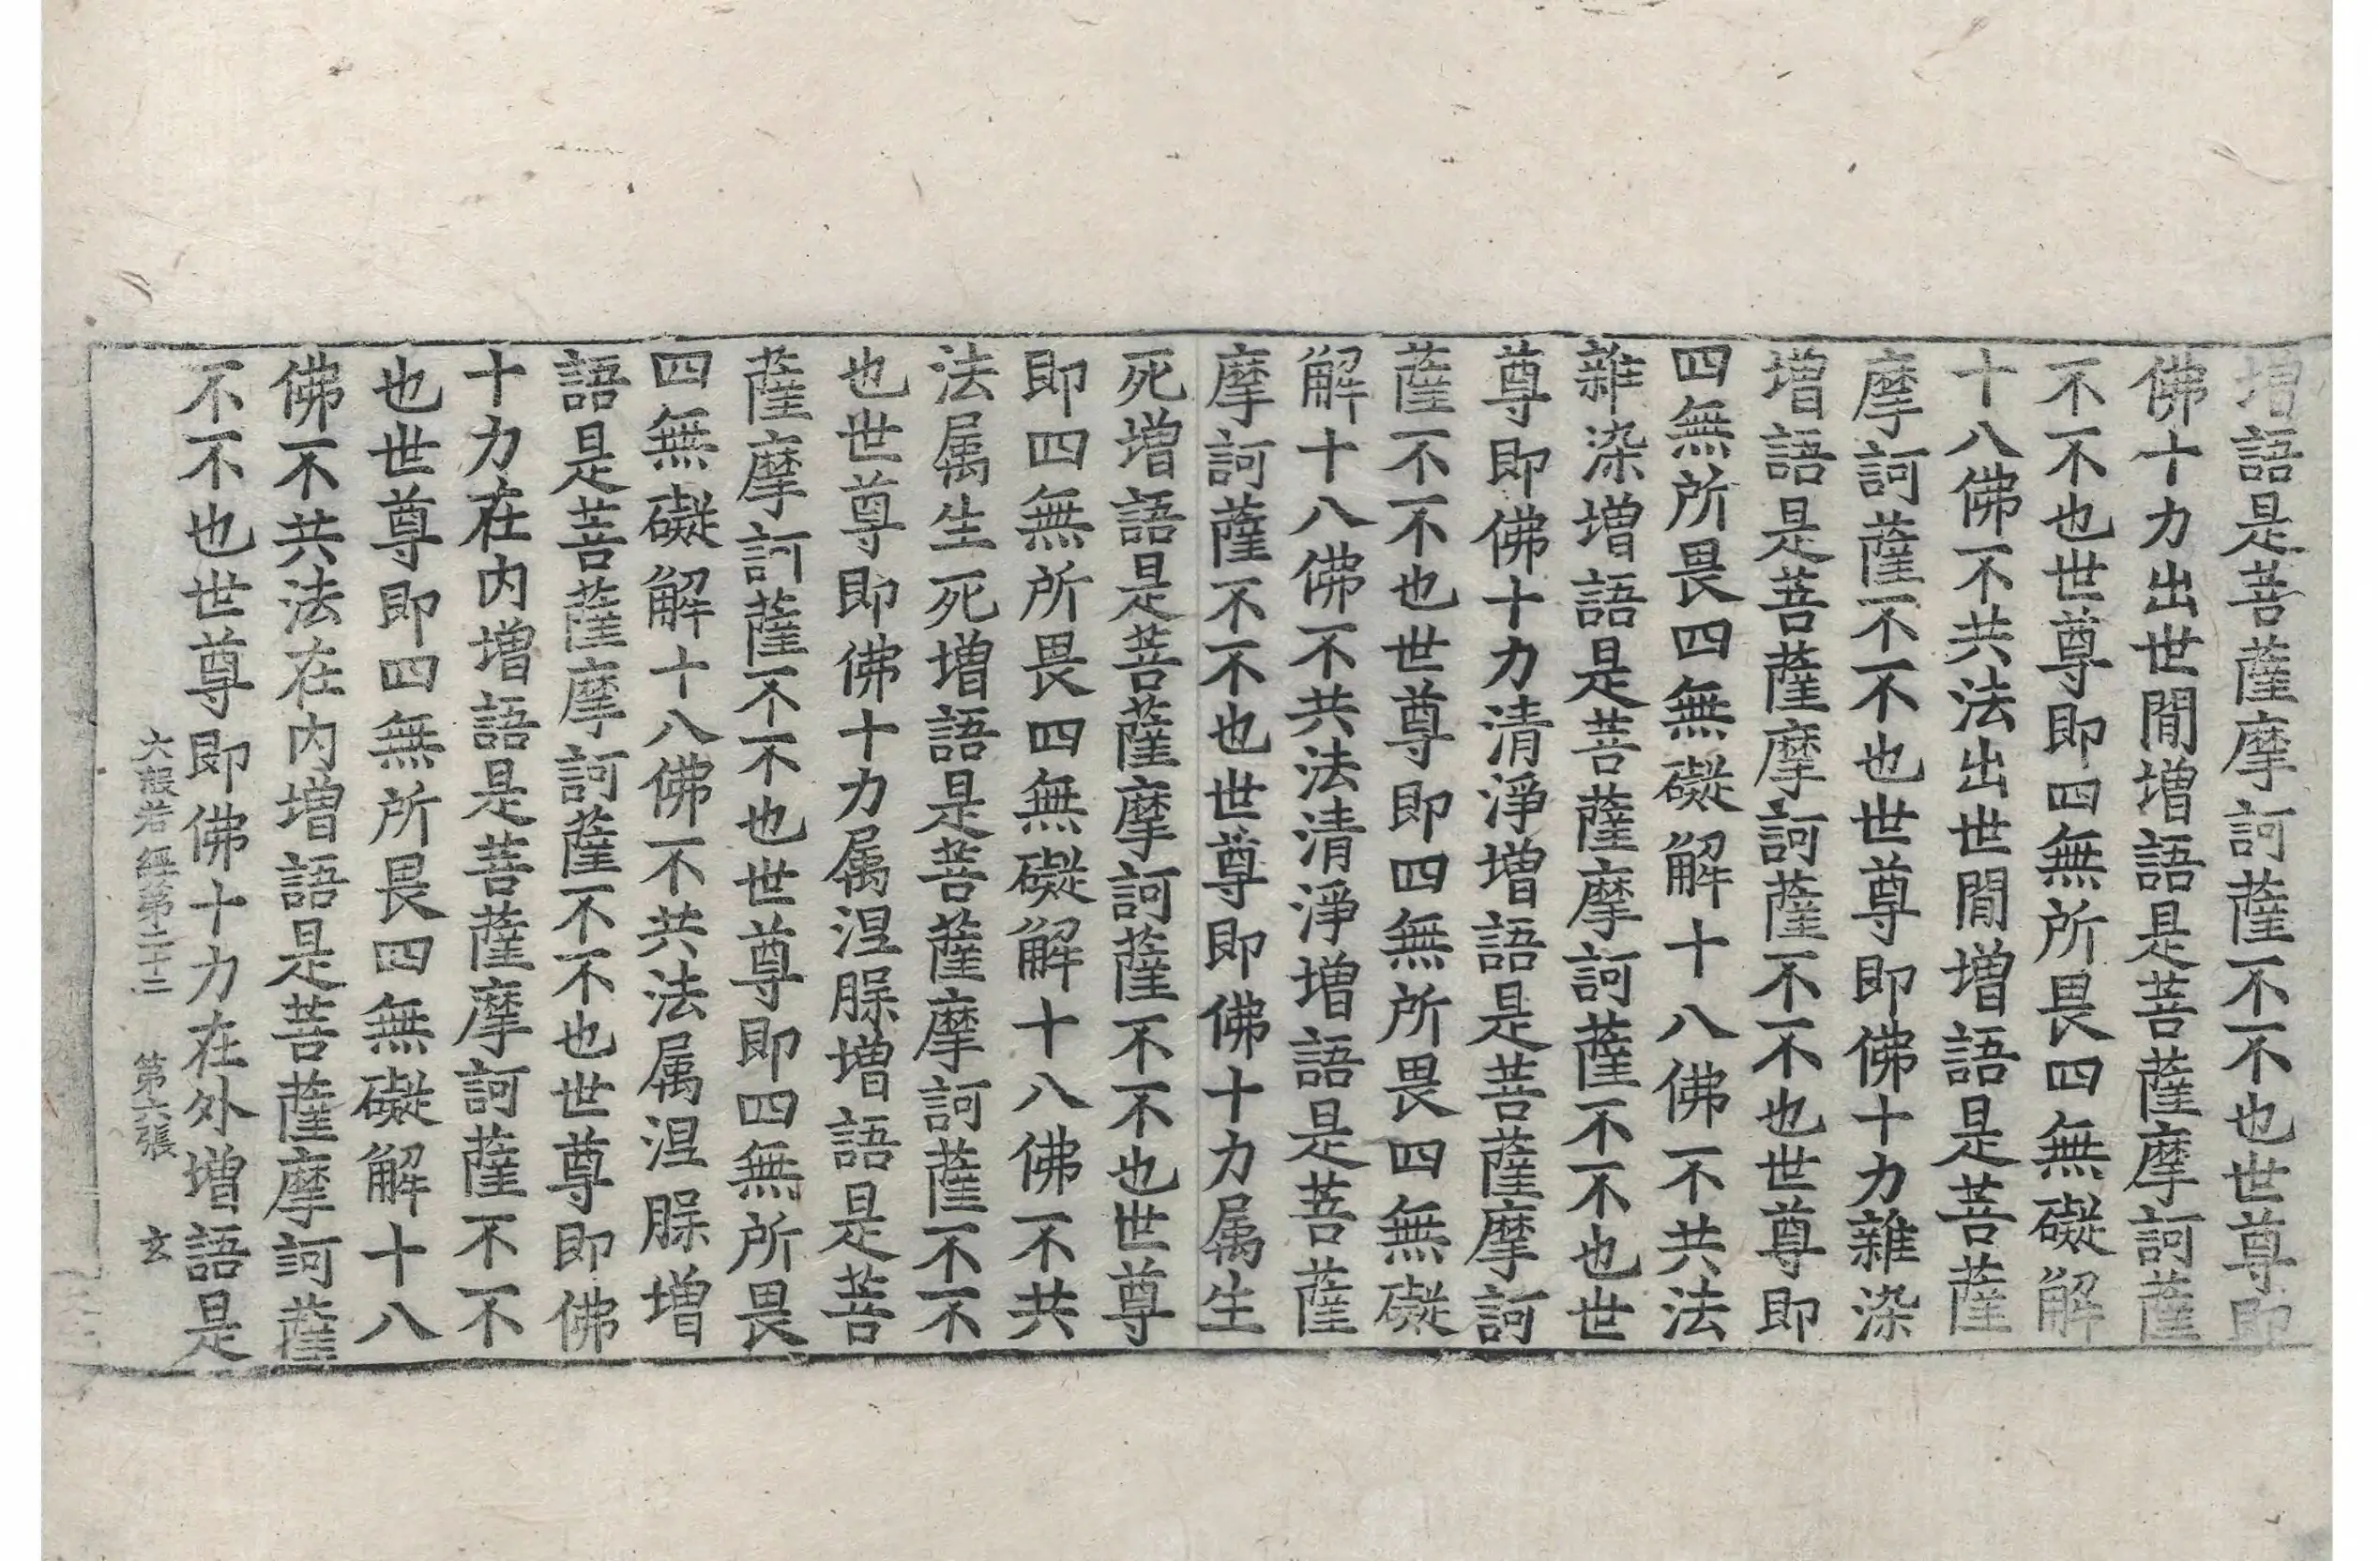 增語是菩薩摩訶薩不不也世尊即
佛十力出世閒增語是菩薩摩訶薩
不不也世尊即四無所畏四無礙解
十八佛不共法出世閒增語是菩薩
摩訶薩不不也世尊即佛十力雜染
增語是菩薩摩訶薩不不也世尊即
四無所畏四無礙解十八佛不共法
雜染增語是菩薩摩訶薩不不也世
尊即佛十力清淨增語是菩薩摩訶
薩不不也世尊即四無所畏四無礙
解十八佛不共法清淨增語是菩薩
摩訶薩不不也世尊即佛十力属生
死增語是菩薩摩訶薩不不也世尊
即四無所畏四無礙解十八佛不共
法属生死增語是菩薩摩訶薩不不
也世尊即佛十力属涅槃增語是菩
薩摩訶薩不不也世尊即四無所畏
四無礙解十八佛不共法属涅槃增
語是菩薩摩訶薩不不也世尊即佛
十力在内增語是菩薩摩訶薩不不
也世尊即四無所畏四無礙解十八
佛不共法在内增語是菩薩摩訶薩
不不也世尊即佛十力在外增語是
大般若經第二十三 第六張 玄